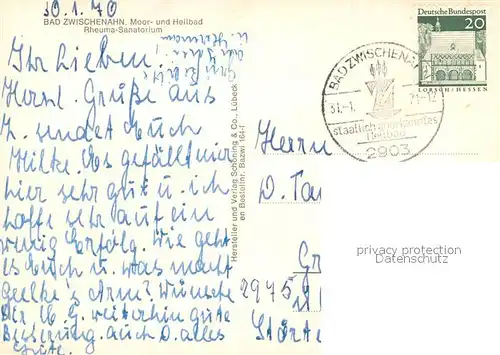 30.1.70
BAD ZWISCHENAHN. Moor- und Heilbad
Rheuma-Sanatorium
Ihr Lieben!
Herzl. Grüße aus
Z. sendet Euch
Hilke. Es gefällt mir
hier sehr gut u. ich
hoffe sehr auf ein
wenig Erfolg. Wie geht
es Euch u. was macht
Arm? Wünsche
weiterhin gute
Besserung. auch O. alles
Gute.
Hersteller und Verlag Schöning & Co., Lübeck
Bestellnr.
Deutsche Bundespost
20
LORSCH/HESSEN
BAD ZWISCHENAHN
31.-1.
-12
staatlich anerkanntes
Heilbad
2903
Herrn
O.
2945
privacy protection
Datenschutz